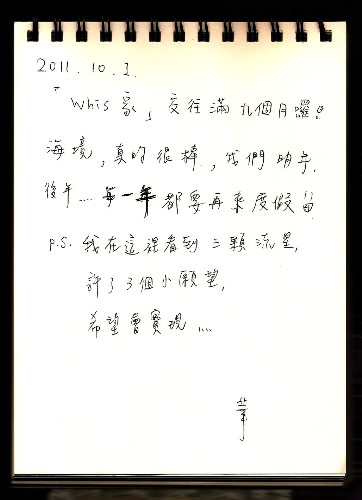 2011.10.2.
「Whis家」交往滿九個月囉!
海境，真的很棒，我們明年.
後年....每一年都要再來度假
p.s. 我在這裡看到三顆流星,
許了3個小願望,
希望會實現....